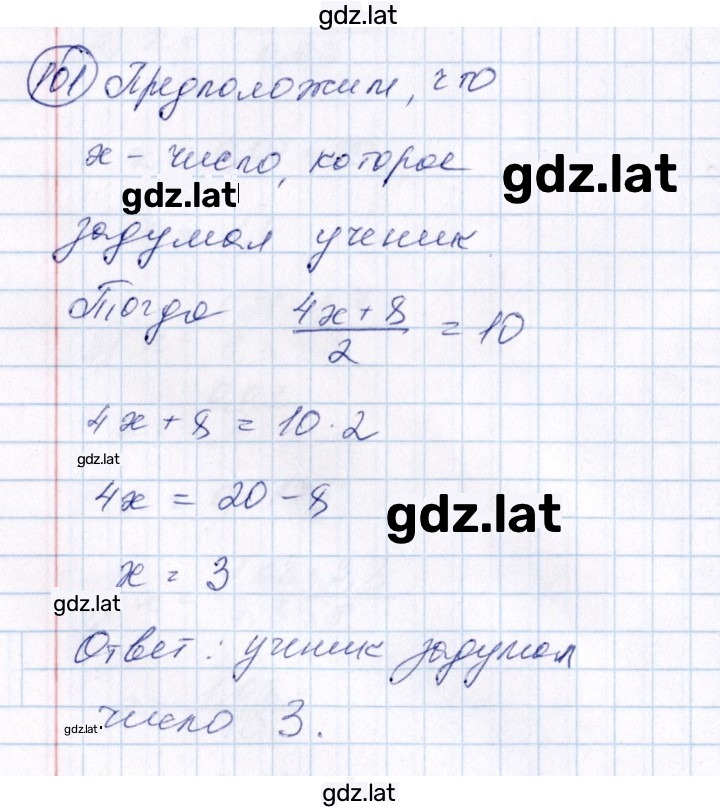 gdz.lat
101 Предположим, что
x - число, которое
gdz.lat
gdz.lat
задумал ученик
Тогда (4x + 8)/2 = 10
4x + 8 = 10 · 2
gdz.lat
4x = 20 - 8
gdz.lat
x = 3
gdz.lat
Ответ: ученик задумал
gdz.lat
число 3.
gdz.lat